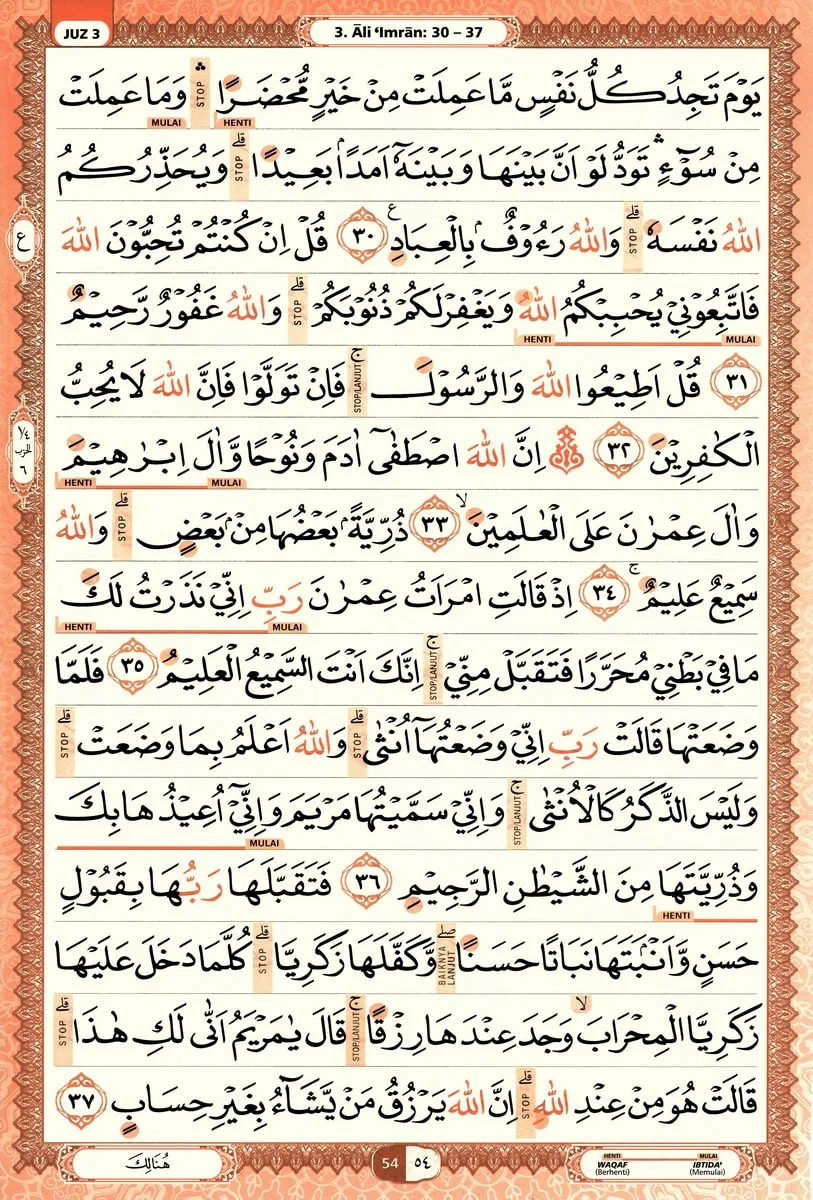 JUZ 3
3. Āli ‘Imrān: 30 – 37
يَوْمَ تَجِدُ كُلُّ نَفْسٍ مَّا عَمِلَتْ مِنْ خَيْرٍ مُّحْضَرًا ۛ STOP وَمَا عَمِلَتْ
HENTI MULAI
مِنْ سُوْۤءٍ ۛ تَوَدُّ لَوْ اَنَّ بَيْنَهَا وَبَيْنَهٗٓ اَمَدًاۢ بَعِيْدًا ۗ STOP وَيُحَذِّرُكُمُ
اللّٰهُ نَفْسَهٗ ۗ STOP وَاللّٰهُ رَءُوْفٌۢ بِالْعِبَادِ ࣖ ٣٠ قُلْ اِنْ كُنْتُمْ تُحِبُّوْنَ اللّٰهَ
ع
فَاتَّبِعُوْنِيْ يُحْبِبْكُمُ اللّٰهُ وَيَغْفِرْ لَكُمْ ذُنُوْبَكُمْ ۗ STOP وَاللّٰهُ غَفُوْرٌ رَّحِيْمٌ
HENTI MULAI
٣١ قُلْ اَطِيْعُوا اللّٰهَ وَالرَّسُوْلَ ۚ STOP/LANJUT فَاِنْ تَوَلَّوْا فَاِنَّ اللّٰهَ لَا يُحِبُّ
الْكٰفِرِيْنَ ٣٢ ۞ اِنَّ اللّٰهَ اصْطَفٰىٓ اٰدَمَ وَنُوْحًا وَّاٰلَ اِبْرٰهِيْمَ
١/٤ الحزب ٦
HENTI MULAI
وَاٰلَ عِمْرٰنَ عَلَى الْعٰلَمِيْنَۙ ٣٣ ذُرِّيَّةًۢ بَعْضُهَا مِنْۢ بَعْضٍ ۗ STOP وَاللّٰهُ
سَمِيْعٌ عَلِيْمٌۚ ٣٤ اِذْ قَالَتِ امْرَاَتُ عِمْرٰنَ رَبِّ اِنِّيْ نَذَرْتُ لَكَ
HENTI MULAI
مَا فِيْ بَطْنِيْ مُحَرَّرًا فَتَقَبَّلْ مِنِّيْ ۚ STOP/LANJUT اِنَّكَ اَنْتَ السَّمِيْعُ الْعَلِيْمُ ٣٥ فَلَمَّا
وَضَعَتْهَا قَالَتْ رَبِّ اِنِّيْ وَضَعْتُهَآ اُنْثٰى ۗ STOP وَاللّٰهُ اَعْلَمُ بِمَا وَضَعَتْ ۗ STOP
وَلَيْسَ الذَّكَرُ كَالْاُنْثٰى ۚ STOP/LANJUT وَاِنِّيْ سَمَّيْتُهَا مَرْيَمَ وَاِنِّيْٓ اُعِيْذُهَا بِكَ
MULAI
وَذُرِّيَّتَهَا مِنَ الشَّيْطٰنِ الرَّجِيْمِ ٣٦ فَتَقَبَّلَهَا رَبُّهَا بِقَبُوْلٍ
HENTI
حَسَنٍ وَّاَنْۢبَتَهَا نَبَاتًا حَسَنًا ۖ BAIKNYA LANJUT وَّكَفَّلَهَا زَكَرِيَّا ۗ STOP كُلَّمَا دَخَلَ عَلَيْهَا
زَكَرِيَّا الْمِحْرَابَۙ وَجَدَ عِنْدَهَا رِزْقًا ۚ STOP/LANJUT قَالَ يٰمَرْيَمُ اَنّٰى لَكِ هٰذَا ۗ STOP
قَالَتْ هُوَ مِنْ عِنْدِ اللّٰهِ ۗ STOP اِنَّ اللّٰهَ يَرْزُقُ مَنْ يَّشَاۤءُ بِغَيْرِ حِسَابٍ ٣٧
هُنَالِكَ
54 ٥٤
HENTI MULAI
WAQAF IBTIDA'
(Berhenti) (Memulai)